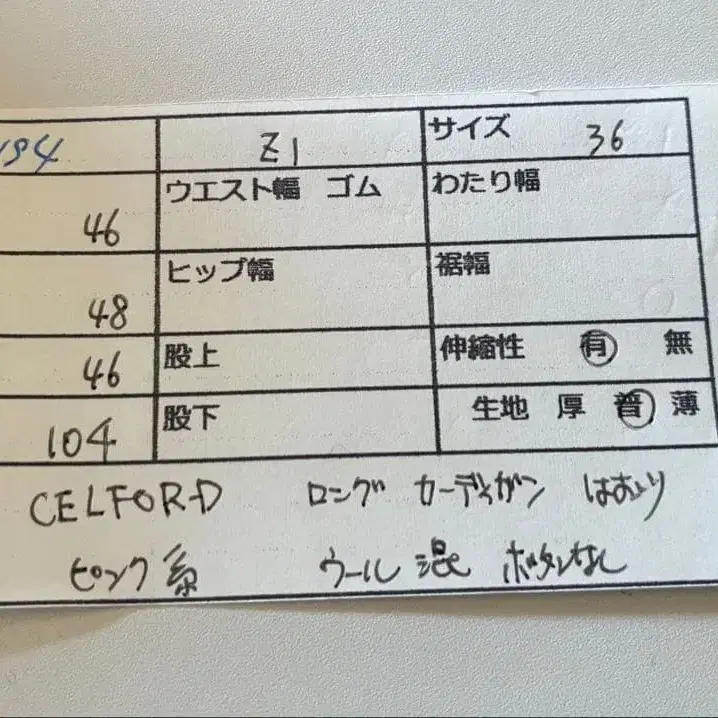 194 Z1 サイズ 36
46 ウエスト幅 ゴム わたり幅
48 ヒップ幅 裾幅
46 股上 伸縮性 有 無
104 股下 生地 厚 普 薄
CELFORD ロング カーディガン はおり
ピンク系 ウール混 ボタンなし